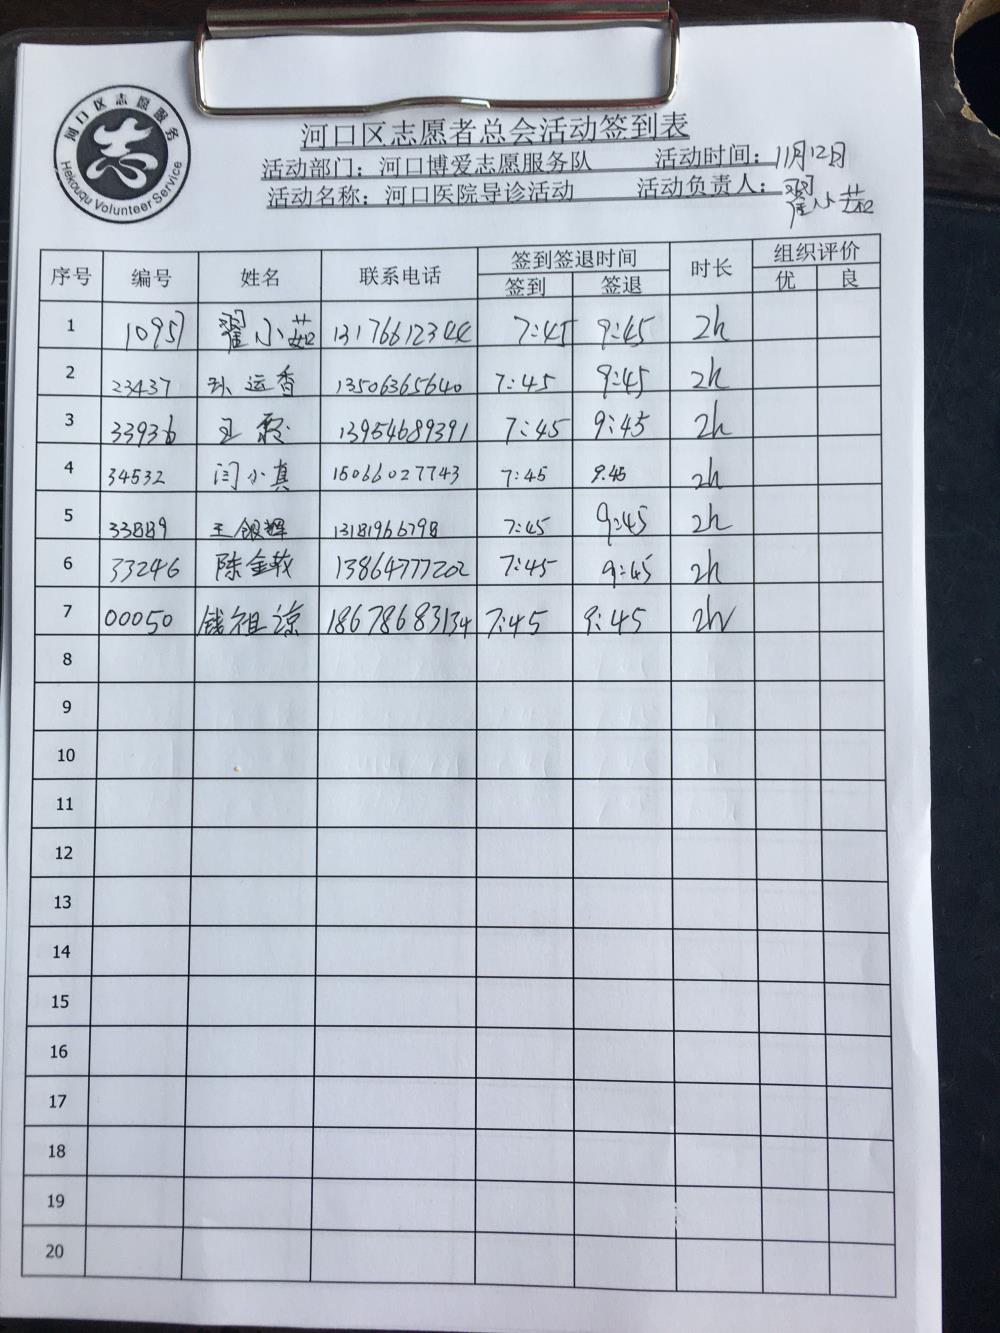 河口区志愿服务
志
Hekouqu Volunteer Service
河口区志愿者总会活动签到表
活动部门：河口博爱志愿服务队 活动时间：11月12日
活动名称：河口医院导诊活动 活动负责人：翟小茹
序号 编号 姓名 联系电话 签到签退时间 时长 组织评价
签到 签退 优 良
1 10957 翟小茹 13176612344 7:45 9:45 2h
2 23437 孙运香 13506365640 7:45 9:45 2h
3 33936 王霞 13954689391 7:45 9:45 2h
4 34532 闫小真 15066027743 7:45 9:45 2h
5 33889 王银辉 13181966798 7:45 9:45 2h
6 33246 陈金敏 13864777202 7:45 9:45 2h
7 00050 钱祖谅 18678683134 7:45 9:45 2h
8
9
10
11
12
13
14
15
16
17
18
19
20